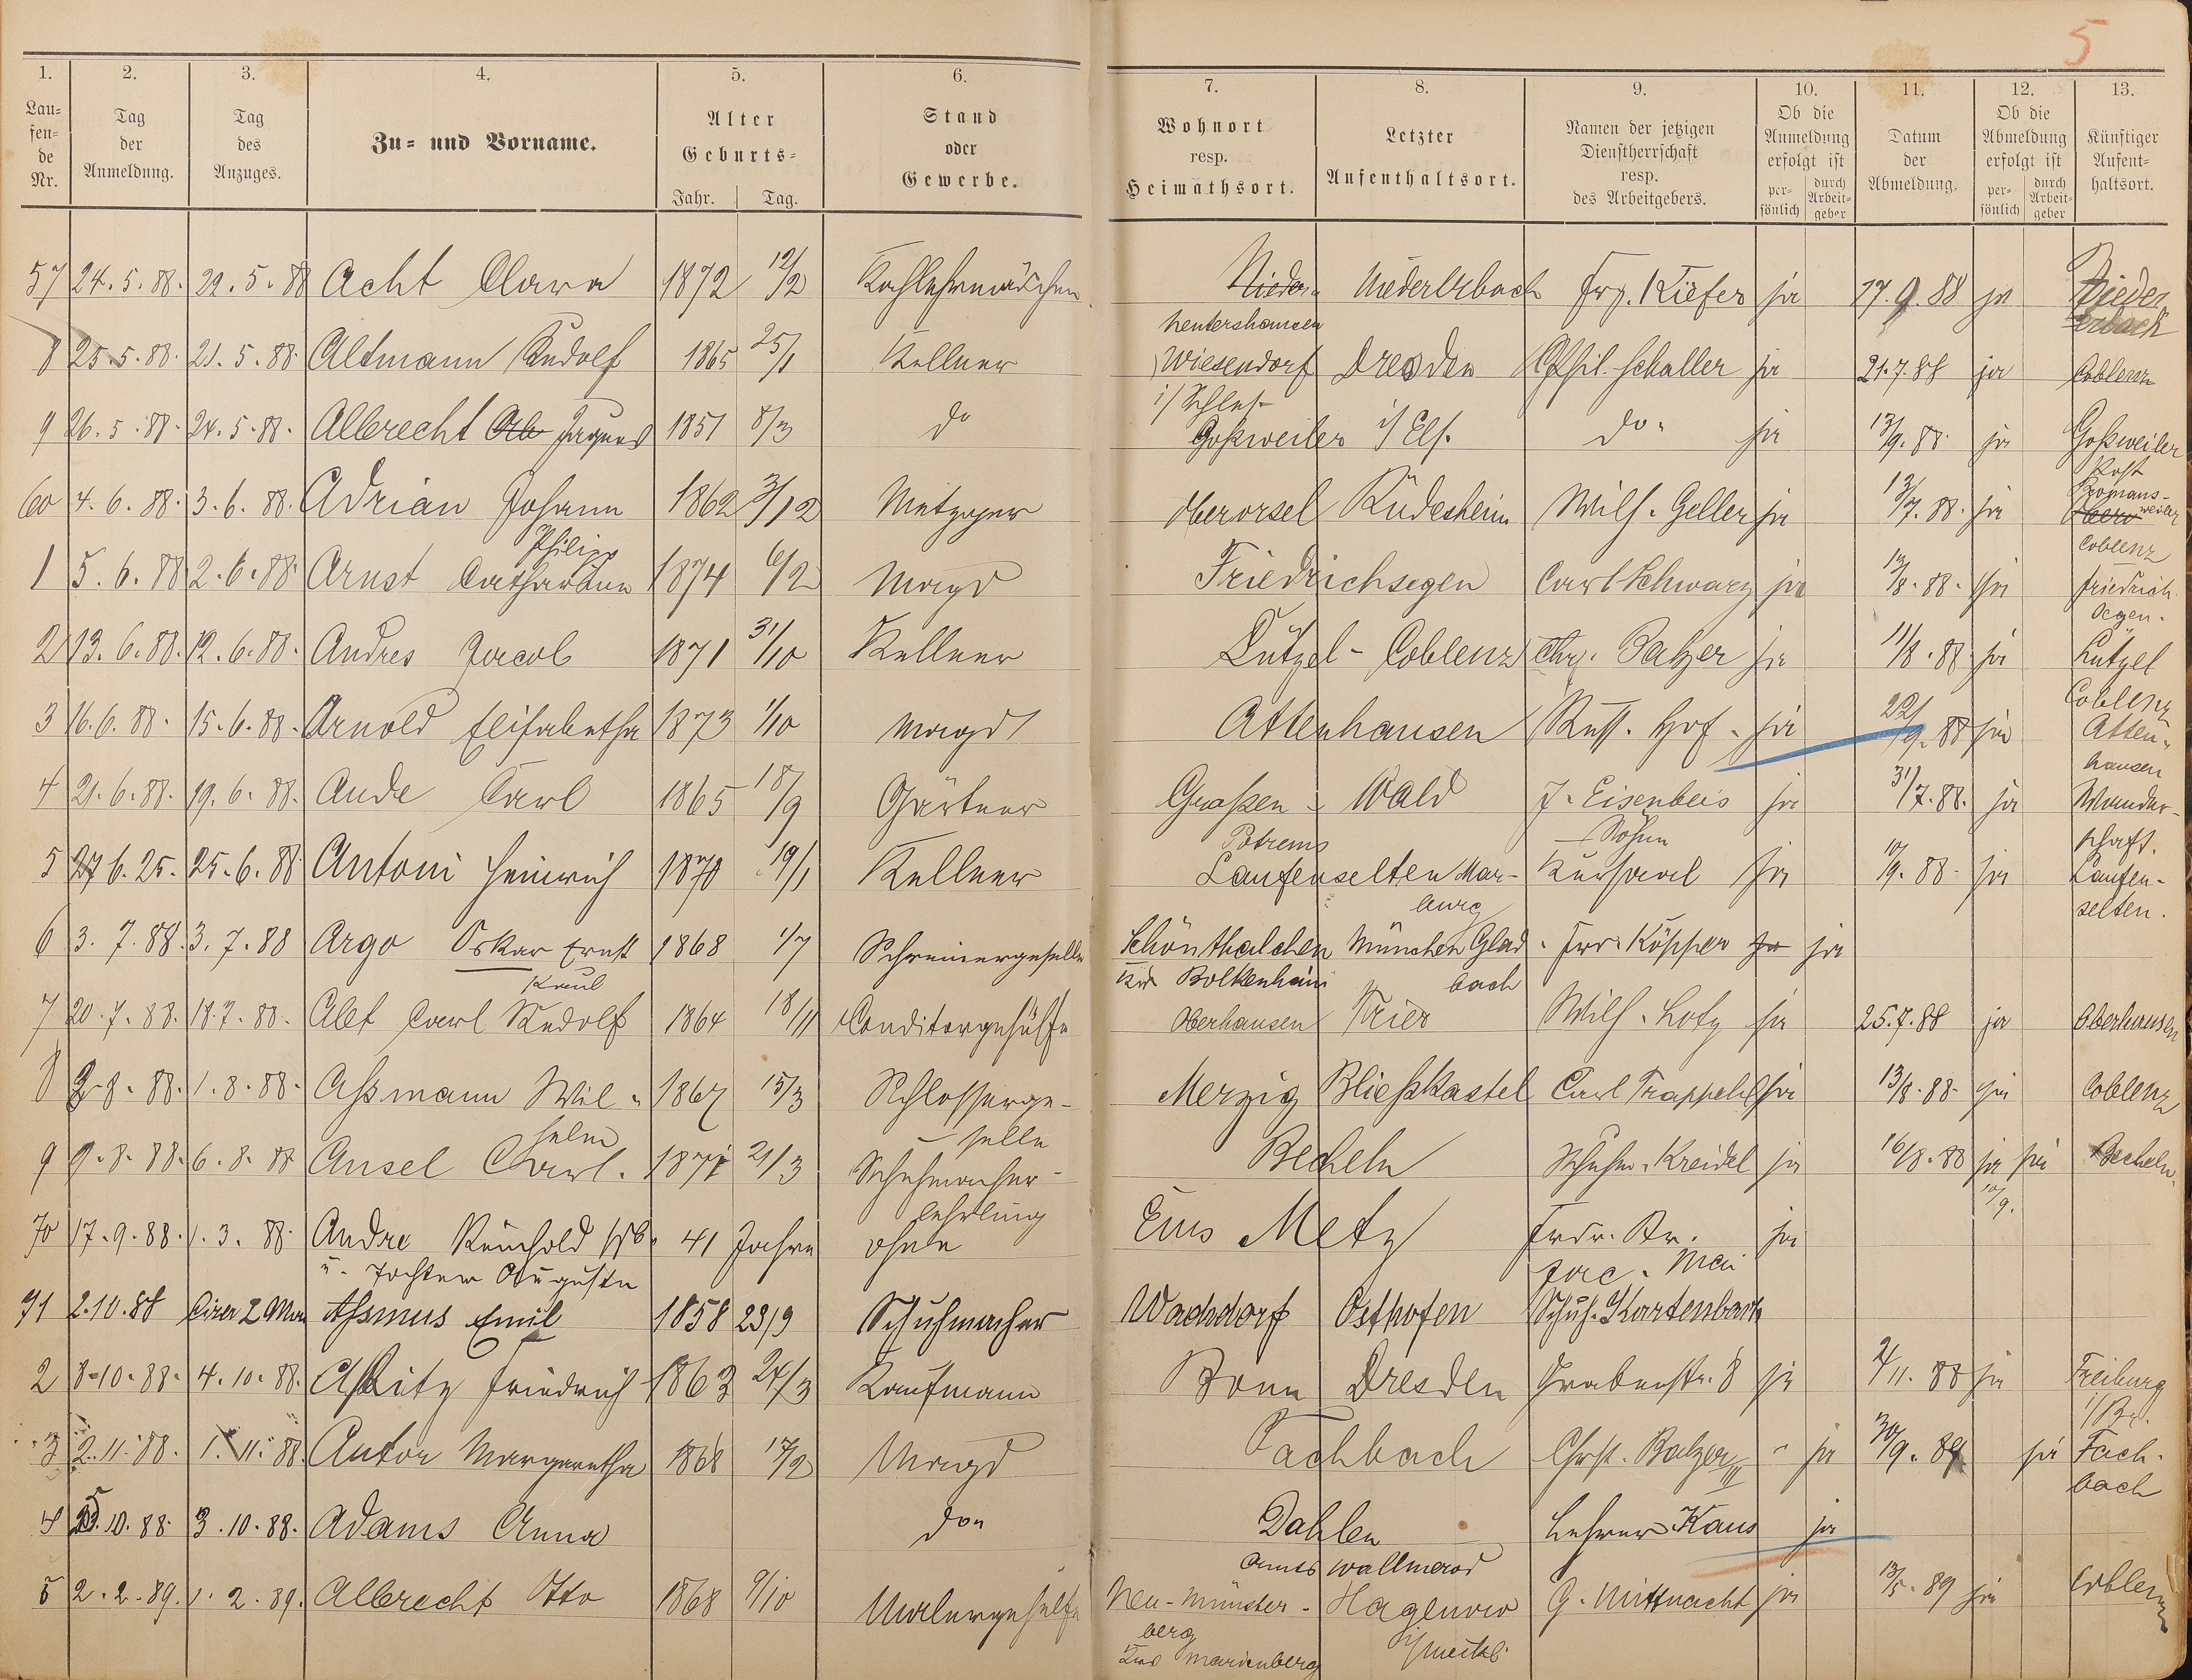 5
1. 2. 3. 4. 5. 6. 7. 8. 9. 10. 11. 12. 13.
Lau-
fen-
de
Nr.
Tag
der
Anmeldung.
Tag
des
Anzuges.
Zu- und Vorname.
Alter
Geburts-
Jahr. Tag.
Stand
oder
Gewerbe.
Wohnort
resp.
Heimathsort.
Letzter
Aufenthaltsort.
Namen der jetzigen
Dienstherrschaft
resp.
des Arbeitgebers.
Ob die
Anmeldung
erfolgt ist
per-
sönlich
durch
Arbeit-
geber
Datum
der
Abmeldung.
Ob die
Abmeldung
erfolgt ist
per-
sönlich
durch
Arbeit-
geber
Künftiger
Aufent-
haltsort.
57 24.5.88. 22.5.88 Acht Clara 1872 12/2 Kochlehrmädchen Nieder- Niederlrbach Frz. Kiefer ja 17.9.88 ja Nieder
erbach
Nentershausen
8 25.5.88. 21.5.88. Altmann Rudolf 1865 25/1 Kellner Wiesendorf Dresden Schaller ja 21.7.88 ja Coblenz
i/Schles-
9 26.5.88. 24.5.88. Albrecht Jaques 1851 8/3 do Goßweiler i/Els. do. ja 13/9.88. ja Goßweiler
Post
Romans-
weiler
60 4.6.88. 3.6.88. Adrian Johann 1862 3/12 Metzger Oberorsel Rüdesheim Wilh. Geller ja 13/7.88. ja
Philipp
Coblenz
1 5.6.88 2.6.88. Arnst Catharina 1874 6/2 Magd Friedrichsegen Carl Schwarz ja 12/8.88. ja Friedrich
segen.
2 13.6.88. 12.6.88. Andres Jacob 1871 31/10 Kellner Lützel-Coblenz Chr. Balzer ja 11/8.88 ja Lützel
Coblenz
3 16.6.88. 15.6.88. Arnold Elisabetha 1873 1/10 Magd Attenhausen Russ. Hof. ja 22/9.88 ja Atten-
hausen
4 21.6.88. 19.6.88. Ande Carl 1865 18/9 Gärtner Graßen- Wald J. Eisenbeis ja 31/7.88. ja Wander-
schaft.
Söhne
5 27 6.25. 25.6.88 Antoni Heinrich 1870 19/1 Kellner Laufenselten Mar- Kursaal ja 10/9.88 ja Laufen-
selten.
burg
6 3.7.88. 3.7.88 Argo Oskar Ernst 1868 1/7 Schreinergeselle Schönthalchen München Glad- Frz. Köpper ja ja
Paul
Bolkenhain bach
7 20.7.88. 18.7.88. Alef Carl Rudolf 1864 18/11 Conditorgehülfe Oberhausen Trier Wilh. Lotz ja 25.7.88 ja Oberhausen
8 2.8.88. 1.8.88. Aßmann Wil- 1867 15/3 Schlosserge- Merzig Bließkastel Carl Trappehl ja 13/8.88. ja Coblenz
helm selle
9 9.8.88. 6.8.88 Ansel Carl. 1871 21/3 Schuhmacher- Becheln Schuhm. Kreidel ja 16/8.88 ja ja Becheln.
lehrling 10/9.
70 17.9.88. 1.3.88. Andre Reinhold Wb. 41 Jahre ohne Ems Metz Frdr. Str. ja
u. Tochter Auguste Jac. Mai
71 2.10.88 Circa 2 Mon Aßmus Emil 1858 23/9 Schuhmacher Wachdorf Osthofen Schuh. Kartenbach
2 8.10.88. 4.10.88. Friedrich 1863 24/3 Kaufmann Bonn Dresden Grabenstr. 8 ja 2/11.88 ja Freiburg
i/Br.
3 2.11.88. 1.11.88. Anton Margaretha 1868 17/2 Magd Fachbach Chrst. Balzer III " ja 30/9.89 ja Fach-
bach
4 5.10.88. 3.10.88. Adams Anna do" Dahlen Lehrer Kaus ja
Amts Wallmerod
5 2.2.89. 1.2.89. Albrecht Otto 1868 9/10 Malergehülfe Neu-Münster- Hagenow G. Mittnacht ja 13/5.89 ja Coblenz
berg i/Meckl.
Marienberg